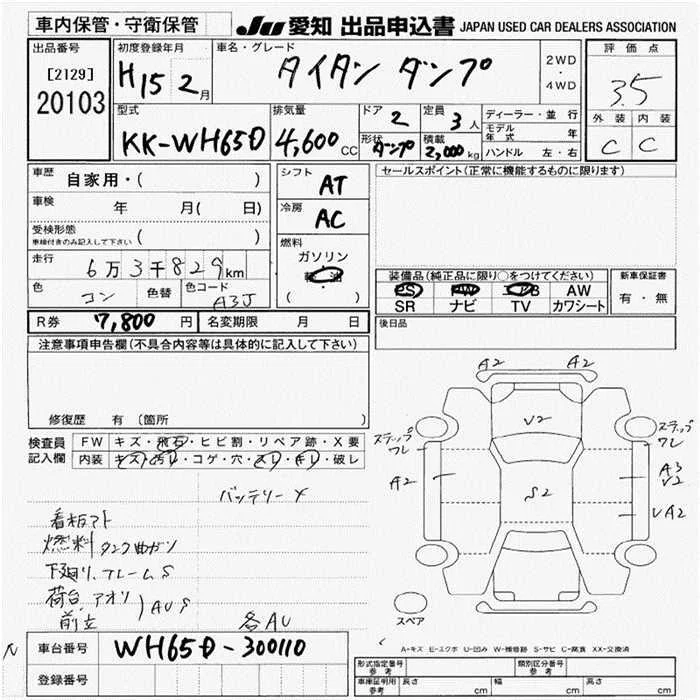 車内保管・守衛保管
JU 愛知 出品申込書 JAPAN USED CAR DEALERS ASSOCIATION
出品番号
[2129]
20103
初度登録年月
H15 2月
車名・グレード
タイタン ダンプ
2WD
・
4WD
評価点
3.5
外装 内装
C C
型式
KK-WH65D
排気量
4,600 CC
ドア
2
定員
3人
形状
ダンプ
積載
2,000kg
ディーラー・並行
モデル年式 年
ハンドル 左・右
車歴
自家用・( )
車検
年 月( 日)
受検形態
車検付きのみ記入して下さい ( )
走行
6万3千829km
色
コン
色替
色コード
A3J
シフト
AT
冷房
AC
燃料
ガソリン
軽油
( )
R券 7,800 円
名変期限 月 日
セールスポイント(正常に機能するものに限ります)
装備品(純正品に限り○をつけてください)
PS PW エアB AW
SR ナビ TV カワシート
新車保証書
有・無
後日品
注意事項申告欄(不具合内容等は具体的に記入して下さい)
修復歴 有 (箇所 )
検査員
記入欄
FW キズ・飛石・ヒビ割・リペア跡・X要
内装 キズ・汚レ・コゲ・穴・スレ・キレ・破レ
バッテリーX
看板アト
燃料タンク曲ガリ
下廻リ、フレームS
荷台、アオリ
前立
AUS
各AU
A2 A2
V2
ステップ
ワレ
ステップ
ワレ
A2
S2
A3
V2
VA2
スペア
A-キズ E-エクボ U-凹み W-補修跡 S-サビ C-腐食 XX-交換済
N
車台番号 WH65D-300110
登録番号
形式指定番号
参考
類別区分番号
参考
車庫証明用
参考
長さ cm
幅 cm
高さ cm